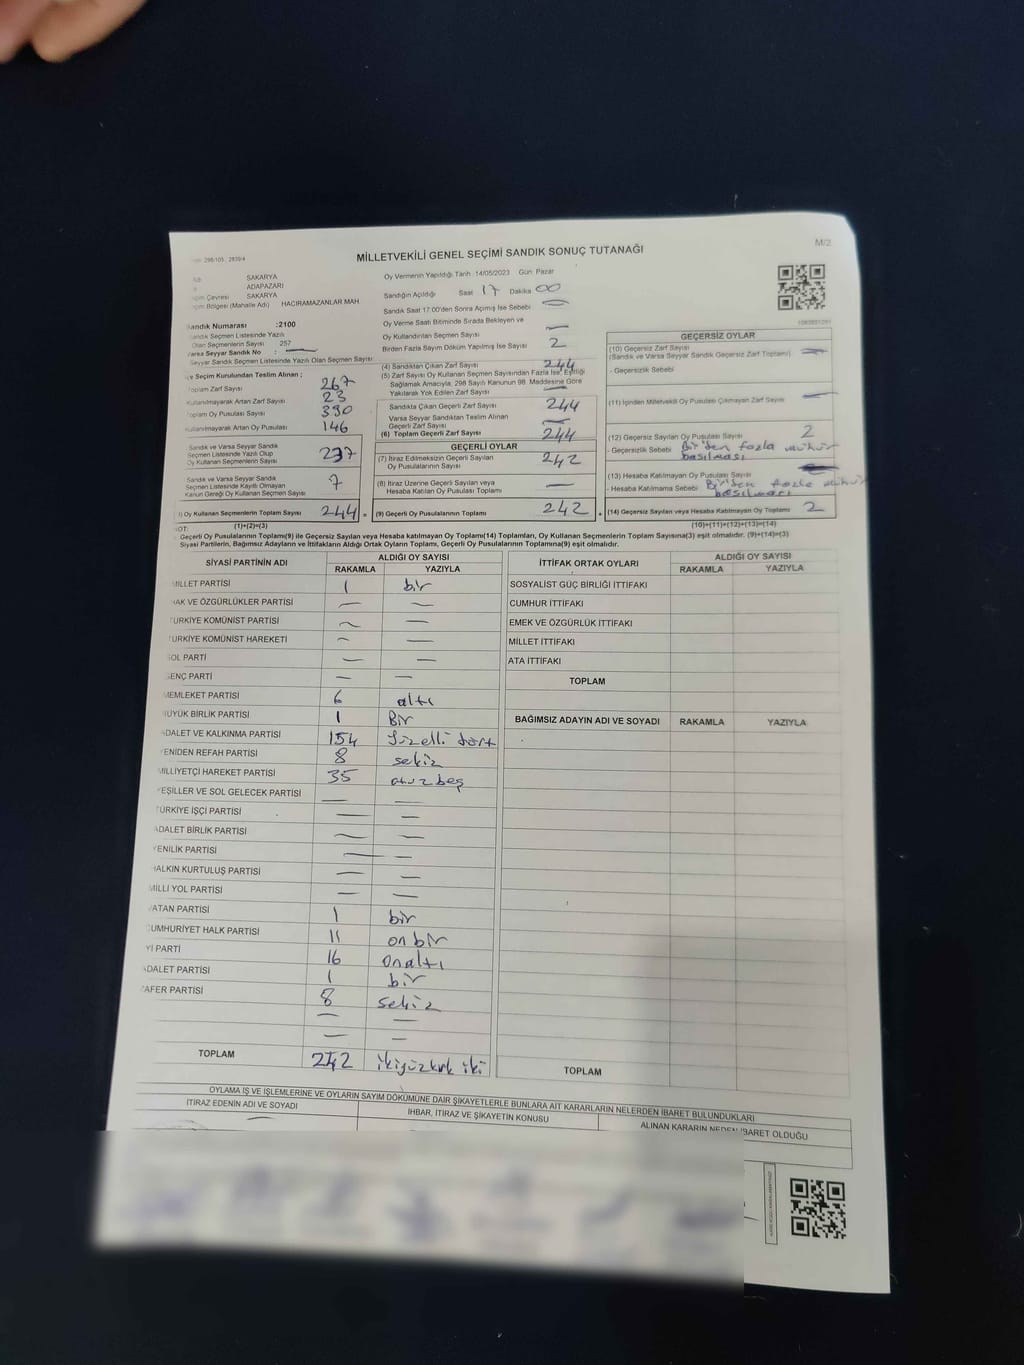 298/105 , 2839/4
M/2
MİLLETVEKİLİ GENEL SEÇİMİ SANDIK SONUÇ TUTANAĞI
SAKARYA
ADAPAZARI
SAKARYA
Bölgesi (Mahalle Adı) HACIRAMAZANLAR MAH.
Sandık Numarası :2100
Sandık Seçmen Listesinde Yazılı
Olan Seçmenlerin Sayısı 257
Varsa Seyyar Sandık No :
Seyyar Sandık Seçmen Listesinde Yazılı Olan Seçmen Sayısı
Oy Vermenin Yapıldığı Tarih :14/05/2023 Gün: Pazar
Sandığın Açıldığı Saat 17 Dakika 00
Sandık Saat 17:00'den Sonra Açılmış İse Sebebi —
Oy Verme Saati Bitiminde Sırada Bekleyen ve
Oy Kullandırılan Seçmen Sayısı —
Birden Fazla Sayım Döküm Yapılmış İse Sayısı 2
Seçim Kurulundan Teslim Alınan ;
Toplam Zarf Sayısı 267
Kullanılmayarak Artan Zarf Sayısı 23
Toplam Oy Pusulası Sayısı 390
Kullanılmayarak Artan Oy Pusulası 146
Sandık ve Varsa Seyyar Sandık
Seçmen Listesinde Yazılı Olup
Oy Kullanan Seçmenlerin Sayısı 237
Sandık ve Varsa Seyyar Sandık
Seçmen Listesinde Kayıtlı Olmayan
Kanun Gereği Oy Kullanan Seçmen Sayısı 7
Oy Kullanan Seçmenlerin Toplam Sayısı 244 =
(1)+(2)=(3)
(4) Sandıktan Çıkan Zarf Sayısı 244
(5) Zarf Sayısı Oy Kullanan Seçmen Sayısından Fazla İse, Eşitliği
Sağlamak Amacıyla, 298 Sayılı Kanunun 98. Maddesine Göre
Yakılarak Yok Edilen Zarf Sayısı —
Sandıkta Çıkan Geçerli Zarf Sayısı 244
Varsa Seyyar Sandıktan Teslim Alınan
Geçerli Zarf Sayısı —
(6) Toplam Geçerli Zarf Sayısı 244
GEÇERLİ OYLAR
(7) İtiraz Edilmeksizin Geçerli Sayılan
Oy Pusulalarının Sayısı 242
(8) İtiraz Üzerine Geçerli Sayılan veya
Hesaba Katılan Oy Pusulası Toplamı —
(9) Geçerli Oy Pusulalarının Toplamı 242
GEÇERSİZ OYLAR
(10) Geçersiz Zarf Sayısı
(Sandık ve Varsa Seyyar Sandık Geçersiz Zarf Toplamı) —
- Geçersizlik Sebebi
(11) İçinden Milletvekili Oy Pusulası Çıkmayan Zarf Sayısı —
(12) Geçersiz Sayılan Oy Pusulası Sayısı 2
- Geçersizlik Sebebi Birden fazla mühür
basılması
(13) Hesaba Katılmayan Oy Pusulası Sayısı
- Hesaba Katılmama Sebebi Birden fazla mühür
basılması
(14) Geçersiz Sayılan veya Hesaba Katılmayan Oy Toplamı 2
(10)+(11)+(12)+(13)=(14)
NOT:
Geçerli Oy Pusulaları Toplamı(9) ile Geçersiz Sayılan veya Hesaba katılmayan Oy Toplam(14) Toplamları, Oy Kullanan Seçmenlerin Toplam Sayısına(3) eşit olmalıdır. (9)+(14)=(3)
Siyasi Partilerin, Bağımsız Adayların ve İttifakların Aldığı Ortak Oyların Toplamı, Geçerli Oy Pusulalarının Toplamına(9) eşit olmalıdır.
SİYASİ PARTİNİN ADI ALDIĞI OY SAYISI
RAKAMLA YAZIYLA
MİLLET PARTİSİ 1 bir
HAK VE ÖZGÜRLÜKLER PARTİSİ — —
TÜRKİYE KOMÜNİST PARTİSİ — —
TÜRKİYE KOMÜNİST HAREKETİ — —
SOL PARTİ — —
GENÇ PARTİ — —
MEMLEKET PARTİSİ 6 altı
BÜYÜK BİRLİK PARTİSİ 1 Bir
ADALET VE KALKINMA PARTİSİ 154 Yüzelli dört
YENİDEN REFAH PARTİSİ 8 sekiz
MİLLİYETÇİ HAREKET PARTİSİ 35 otuz beş
YEŞİLLER VE SOL GELECEK PARTİSİ — —
TÜRKİYE İŞÇİ PARTİSİ — —
ADALET BİRLİK PARTİSİ — —
YENİLİK PARTİSİ — —
HALKIN KURTULUŞ PARTİSİ — —
MİLLİ YOL PARTİSİ — —
VATAN PARTİSİ 1 bir
CUMHURİYET HALK PARTİSİ 11 on bir
İYİ PARTİ 16 Onaltı
ADALET PARTİSİ 1 bir
ZAFER PARTİSİ 8 sekiz
— —
— —
TOPLAM 242 ikiyüzkırk iki
İTTİFAK ORTAK OYLARI ALDIĞI OY SAYISI
RAKAMLA YAZIYLA
SOSYALİST GÜÇ BİRLİĞİ İTTİFAKI
CUMHUR İTTİFAKI
EMEK VE ÖZGÜRLÜK İTTİFAKI
MİLLET İTTİFAKI
ATA İTTİFAKI
TOPLAM
BAĞIMSIZ ADAYIN ADI VE SOYADI RAKAMLA YAZIYLA
TOPLAM
OYLAMA İŞ VE İŞLEMLERİNE VE OYLARIN SAYIM DÖKÜMÜNE DAİR ŞİKAYETLERLE BUNLARA AİT KARARLARIN NELERDEN İBARET BULUNDUKLARI
İTİRAZ EDENİN ADI VE SOYADI İHBAR, İTİRAZ VE ŞİKAYETİN KONUSU ALINAN KARARIN NEDEN İBARET OLDUĞU